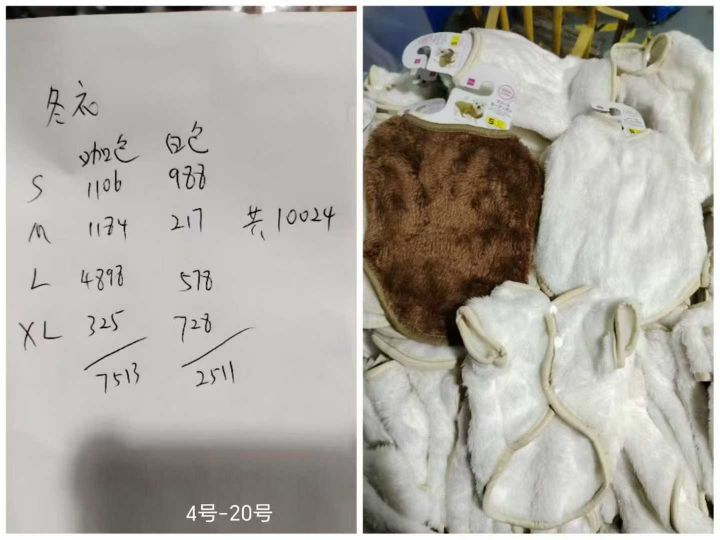 冬衣
咖色 白色
S 1106 988
M 1184 217 共10024
L 4898 578
XL 325 728
7513 2511
4号-20号
S
S